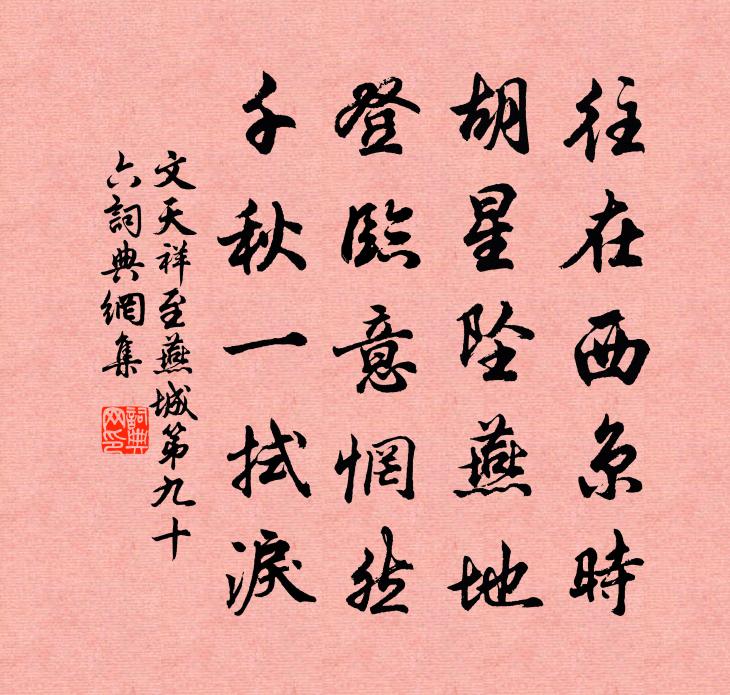 往在西京時
胡星墜燕地
登臨意惘然
千秋一拭淚
文天祥至燕城第九十
六詞典網集
詞典
网印